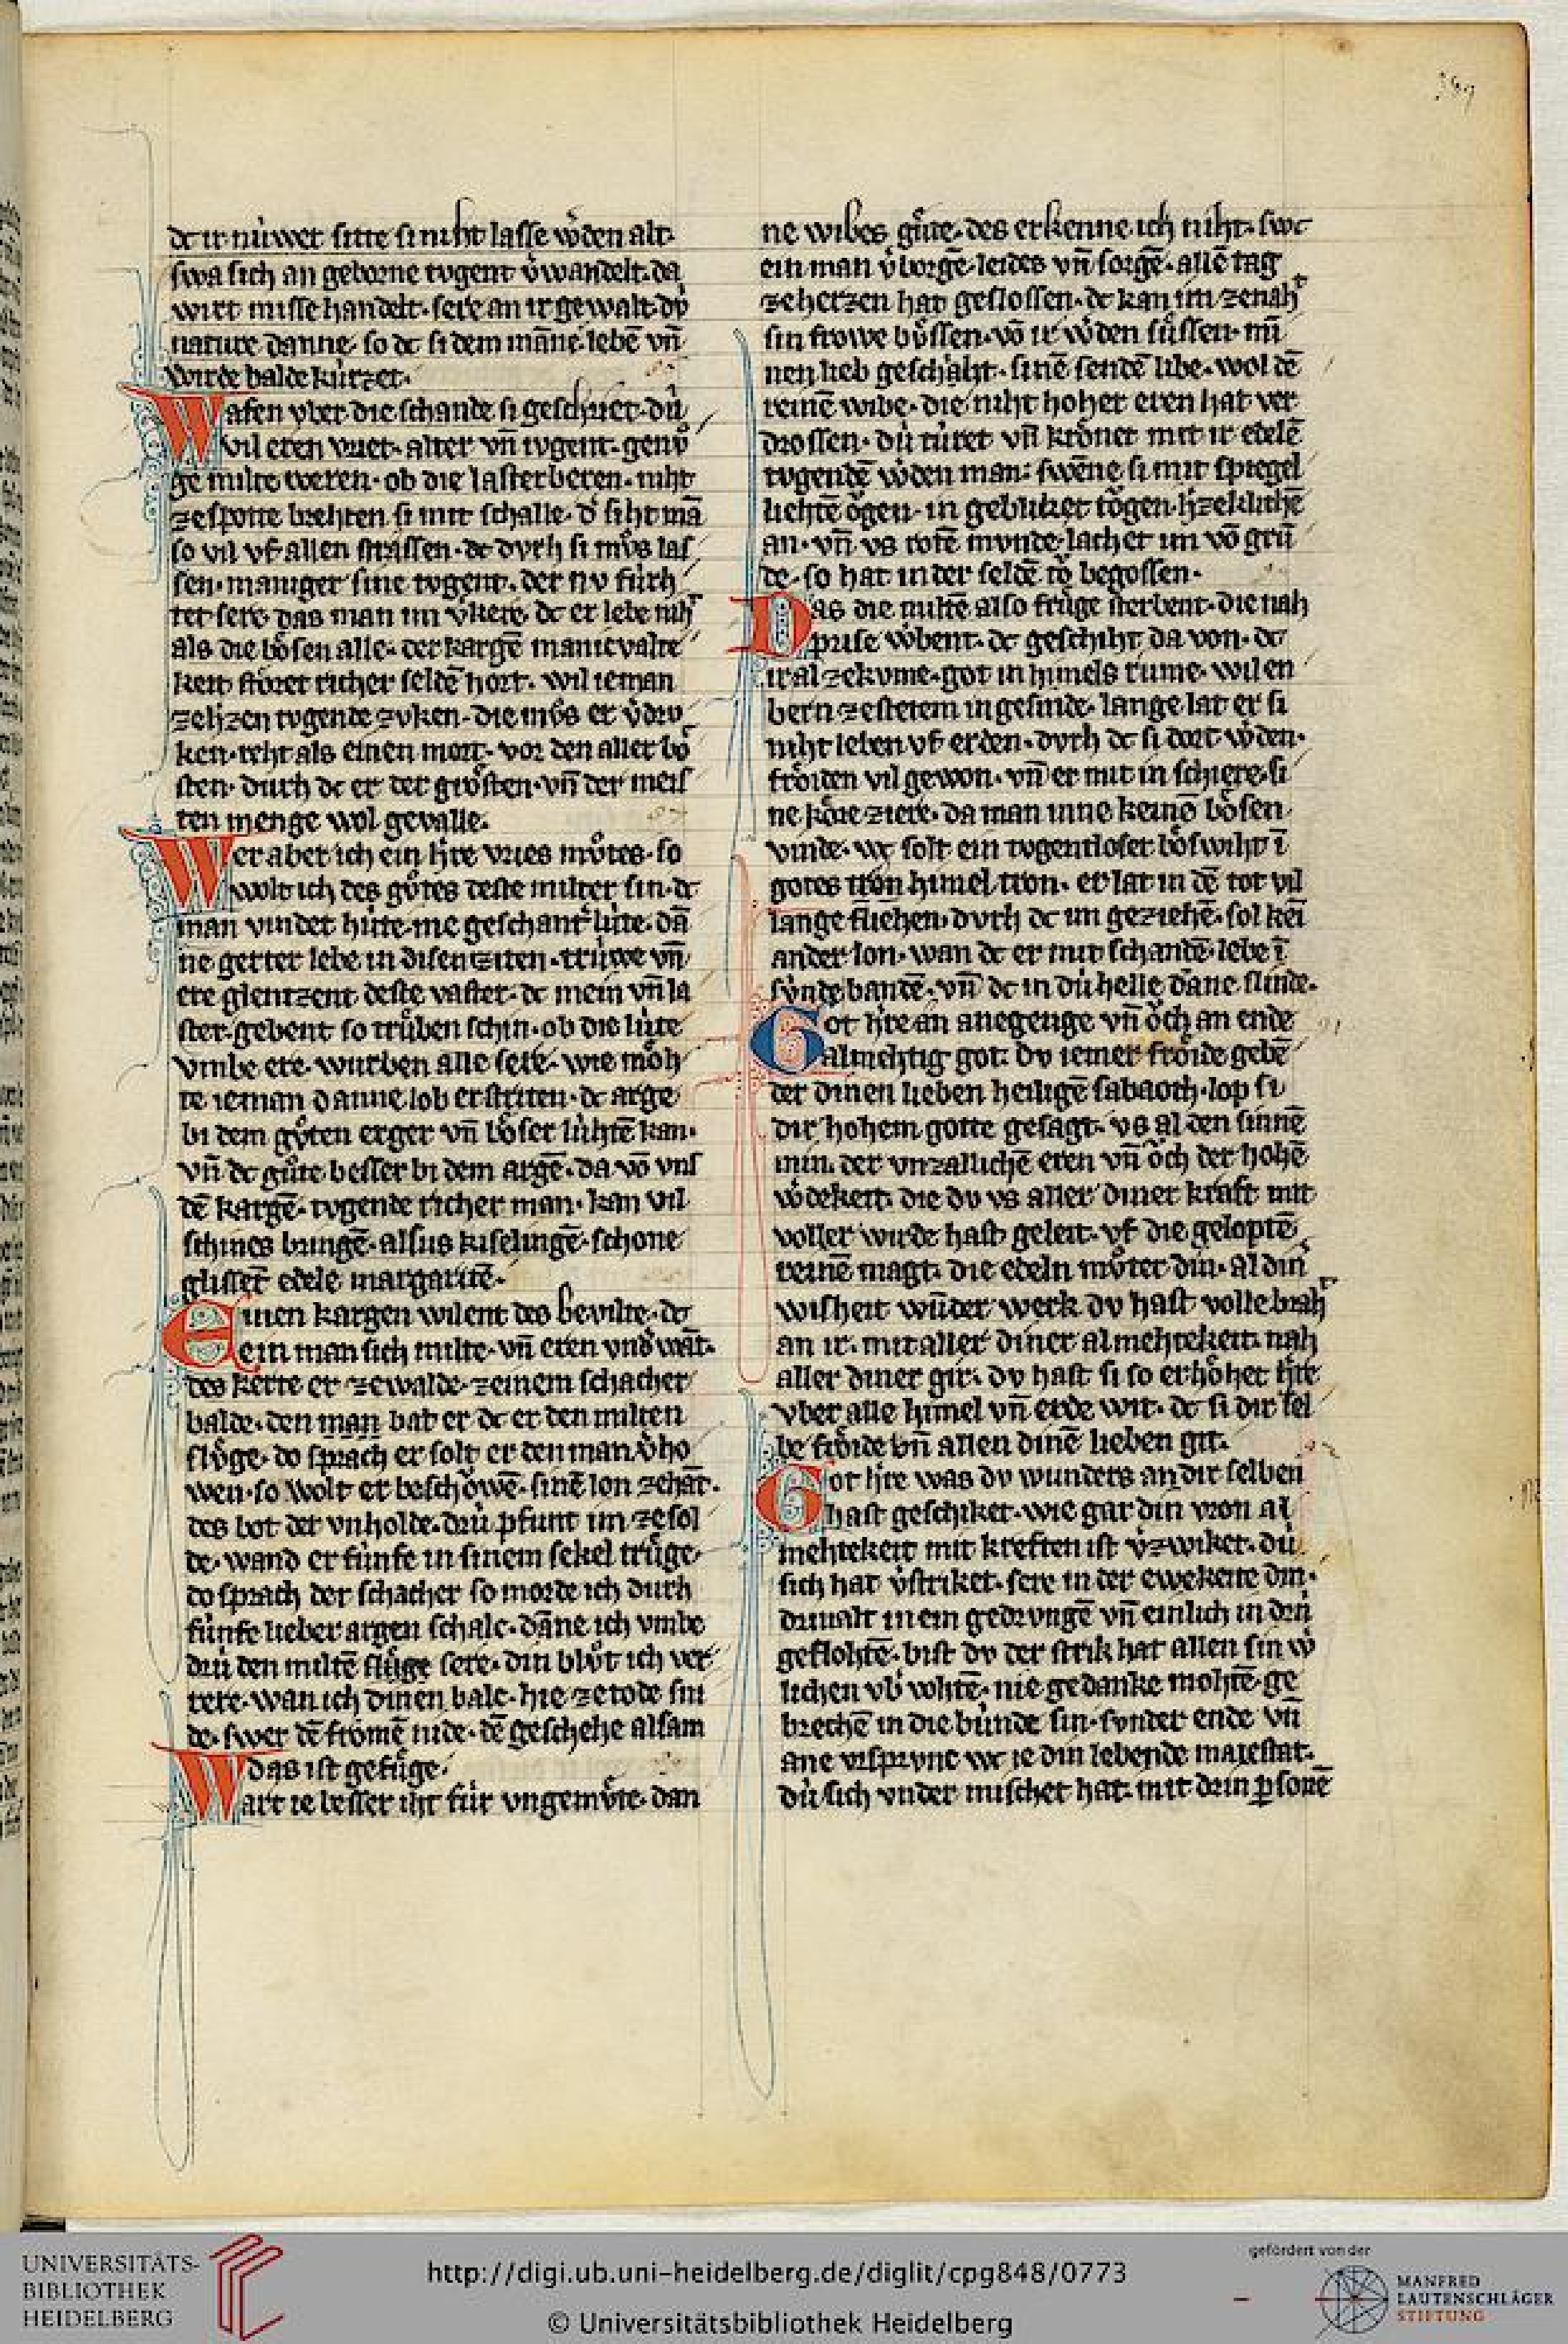 389
dc ir nv́wet sitte si niht lasse w̓den alt·
swa sich an geborne tvgent v̓wandelt· da
wirt misse handelt· sere an ir gewalt· dv́
nature danne· so dc si dem mañe· lebē vn̄
wirde balde kúrzet·
Wafen vber die schande si geschriet· dú
vil eren vriet· alter vn̄ tvgent· genv̊
ge milte weren· ob die lasterberen· niht
ze spotte brehten si mit schalle· d̓ siht mā
so vil vf allen strassen· dc dvrh si mv̊s las
sen· maniger sine tvgent· der nv fúrh
tet sere das man im v̓kere· dc er lebe niht
als die bo̊sen alle· der kargē manicvalte
keit sto̊ret richer seldē hort· wil ieman
ze h̓zen tvgende zvken· die mv̊s er v̓drv
ken· reht als einen mort· vor den aller bo̊
sten· durh dc er der gro̊sten· vn̄ der meis
ten menge wol gevalle·
Wer aber ich ein h̓re vries mv̊tes· so
wolt ich des gv̊tes deste milter sin· dc
man vindet húte· me geschanter lúte· dā
ne gerter lebe in disen ziten· trúwe vn̄
ere glentzent deste vaster· dc mein vn̄ la
ster· gebent so trů́ben schin· ob die lúte
vmbe ere· wurben alle sere· wie mo̊h
te ieman danne lob erstriten· dc arge
bi dem gv̊ten erger vn̄ bo̊ser lúhtē kan·
vn̄ dc gůte besser bi dem argē· da vō vns
dē kargē· tvgende richer man· kan vil
schines bringē· alsus kiselingē· schone
glisset edele margaritē·
Einen kargen wilent des bevilte· dc
ein man sich milte· vn̄ eren vnd̓wāt·
des kerte er ze walde· zeinem schacher
balde· den man bat er dc er den milten
slv̊ge· do sprach er solt er den man v̓ho
wen· so wolt er beschȯwē· sinē lon zehāt·
des bot der vnholde· drú pfunt im ze sol
de· wand er fúnfe in sinem sekel trůge·
do sprach der schacher so morde ich durh
fúnfe lieber argen schalc· dāne ich vmbe
drú den miltē slůge sere· din blv̊t ich ver
rere· wan ich dinen balc· hie ze tode sni
de· swer dē fromē nide· dē geschehe alsam
das ist gefůge·
Wart ie besser iht fúr vngemv̊te· dan
ne wibes gůte· des erkenne ich niht· swc
ein man v̓borgē· leides vn̄ sorgē· allē tag
ze herzen hat geslossen· dc kan im ze naht
sin frowe bůssen· vō ir w̓den sůssen· mī
nen lieb geschiht· sinē sendē libe· wol dē
reinē wibe· die niht hoher eren hat ver
drossen· dú túret vn̄ kro̊net mit ir edelē
tvgendē w̓den man· swēne si mit spiegel
liehtē o̊gen· in gebliket to̊gen· h̓zeklichē
an· vn̄ vs rotē mvnde· lachet im vō grū
de· so hat in der seldē to̊ begossen·
Das die miltē also frůge sterbent· die nah
prise w̓bent· dc geschiht da von· dc
ir al ze kvme· got in himels rume· wil en
bern ze sterem ingesinde· lange lat er si
niht leben vf erden· dvrh dc si dort w̓den·
fro̊iden vil gewon· vn̄ er mit in schiere· si
ne ko̊re ziere· da man inne keinē bo̊sen
vinde· wc solt ein tvgentloser bo̊swiht ī
gotes tron himel tron· er lat in dē tot vil
lange fliehen· dvrh dc im geziehē· sol kei
ander lon· wan dc er mit schandē· lebe ī
sv́nde bandē· vn̄ dc in dú helle dāne slinde·
Got h̓re an anegenge vn̄ o̊ch an ende
almehtig got· dv iemer fro̊ide gebē
der dinen lieben heiligē sabaoth· lop si
dir hohem gotte gesagt· vs al den sinnē
min· der vnzallichē eren vn̄ o̊ch der hohē
w̓dekeit· die dv vs aller diner kraft mit
voller wirde hast geleit· vf die geloptē
reinē magt· die edeln mv̊ter din· al din
wisheit wūder werk dv hast volle braht
an ir· mit aller diner almehtekeit· nah
aller diner gir· dv hast si so erho̊het h̓re
vber alle himel vn̄ erde wit· dc si dir sel
be fro̊ide vn̄ allen dinē lieben git·
Got h̓re was dv wunders an dir selben
hast geschiket· wie gar din vron al
mehtekeit mit kreften ist v̓zwiket· dú
sich hat v̓striket· sere in der ewekeite din·
drivalt in ein gedrvngē vn̄ einlich in drú
geflohtē· bist dv der strik hat allen sin w̓
lichen vb̓ vohtē· nie gedanke mohtē· ge
brechē in die búnde sin· svnder ende vn̄
ane vrsprvnc wc ie din lebende maiestat·
dú sich vnder mischet hat· mit drin p̱sonē
UNIVERSITÄTS-
BIBLIOTHEK
HEIDELBERG
http://digi.ub.uni-heidelberg.de/diglit/cpg848/0773
© Universitätsbibliothek Heidelberg
gefördert von der
MANFRED
LAUTENSCHLÄGER
STIFTUNG